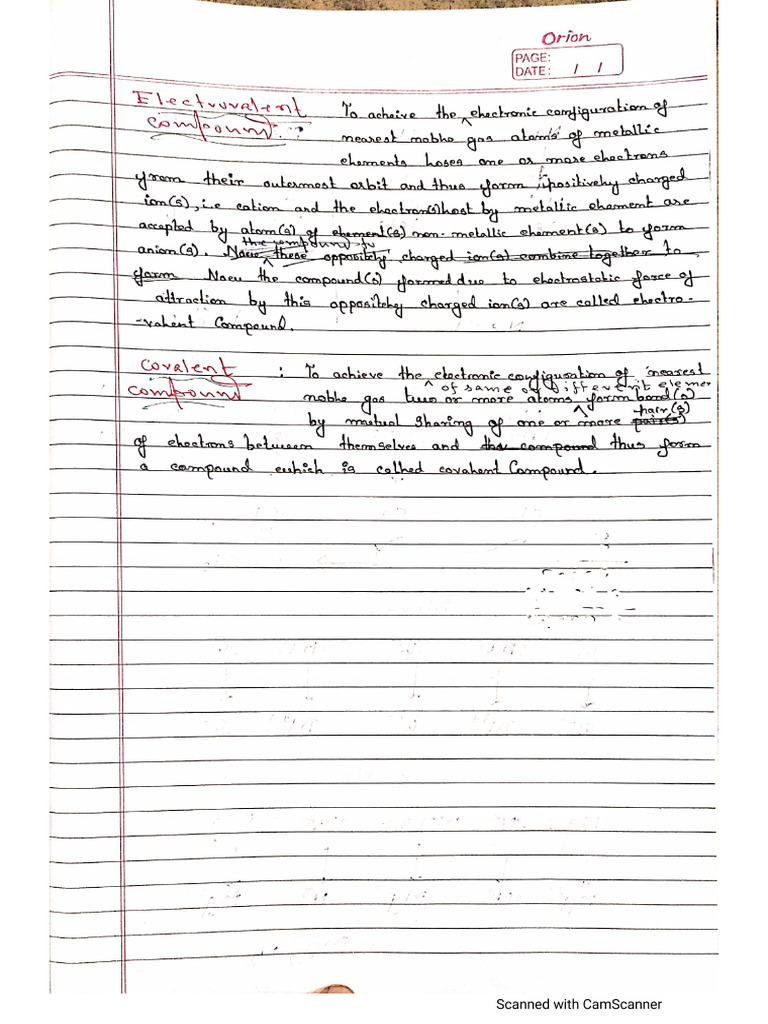 Orion
PAGE:
DATE: / /
Electrovalent To acheive the electronic configuration of
compound :- nearest noble gas atoms of metallic
elements loses one or more electrons
from their outermost orbit and thus form positively charged
ion(s), i.e cation and the electron(s) lost by metallic element are
accepted by atom(s) of element(s) non-metallic element(s) to form
the compound fo
anion(s). Now these oppositely charged ion(s) combine together to
form Now the compound(s) formed due to electrostatic force of
attraction by this oppositely charged ion(s) are called electro-
-valent Compound.
Covalent : To achieve the electronic configuration of nearest
of same or different elemen
compound noble gas two or more atoms form bond(s)
pair(s)
by mutual sharing of one or more pair(s)
of electrons between themselves and the compound thus form
a compound which is called covalent Compound.
Scanned with CamScanner